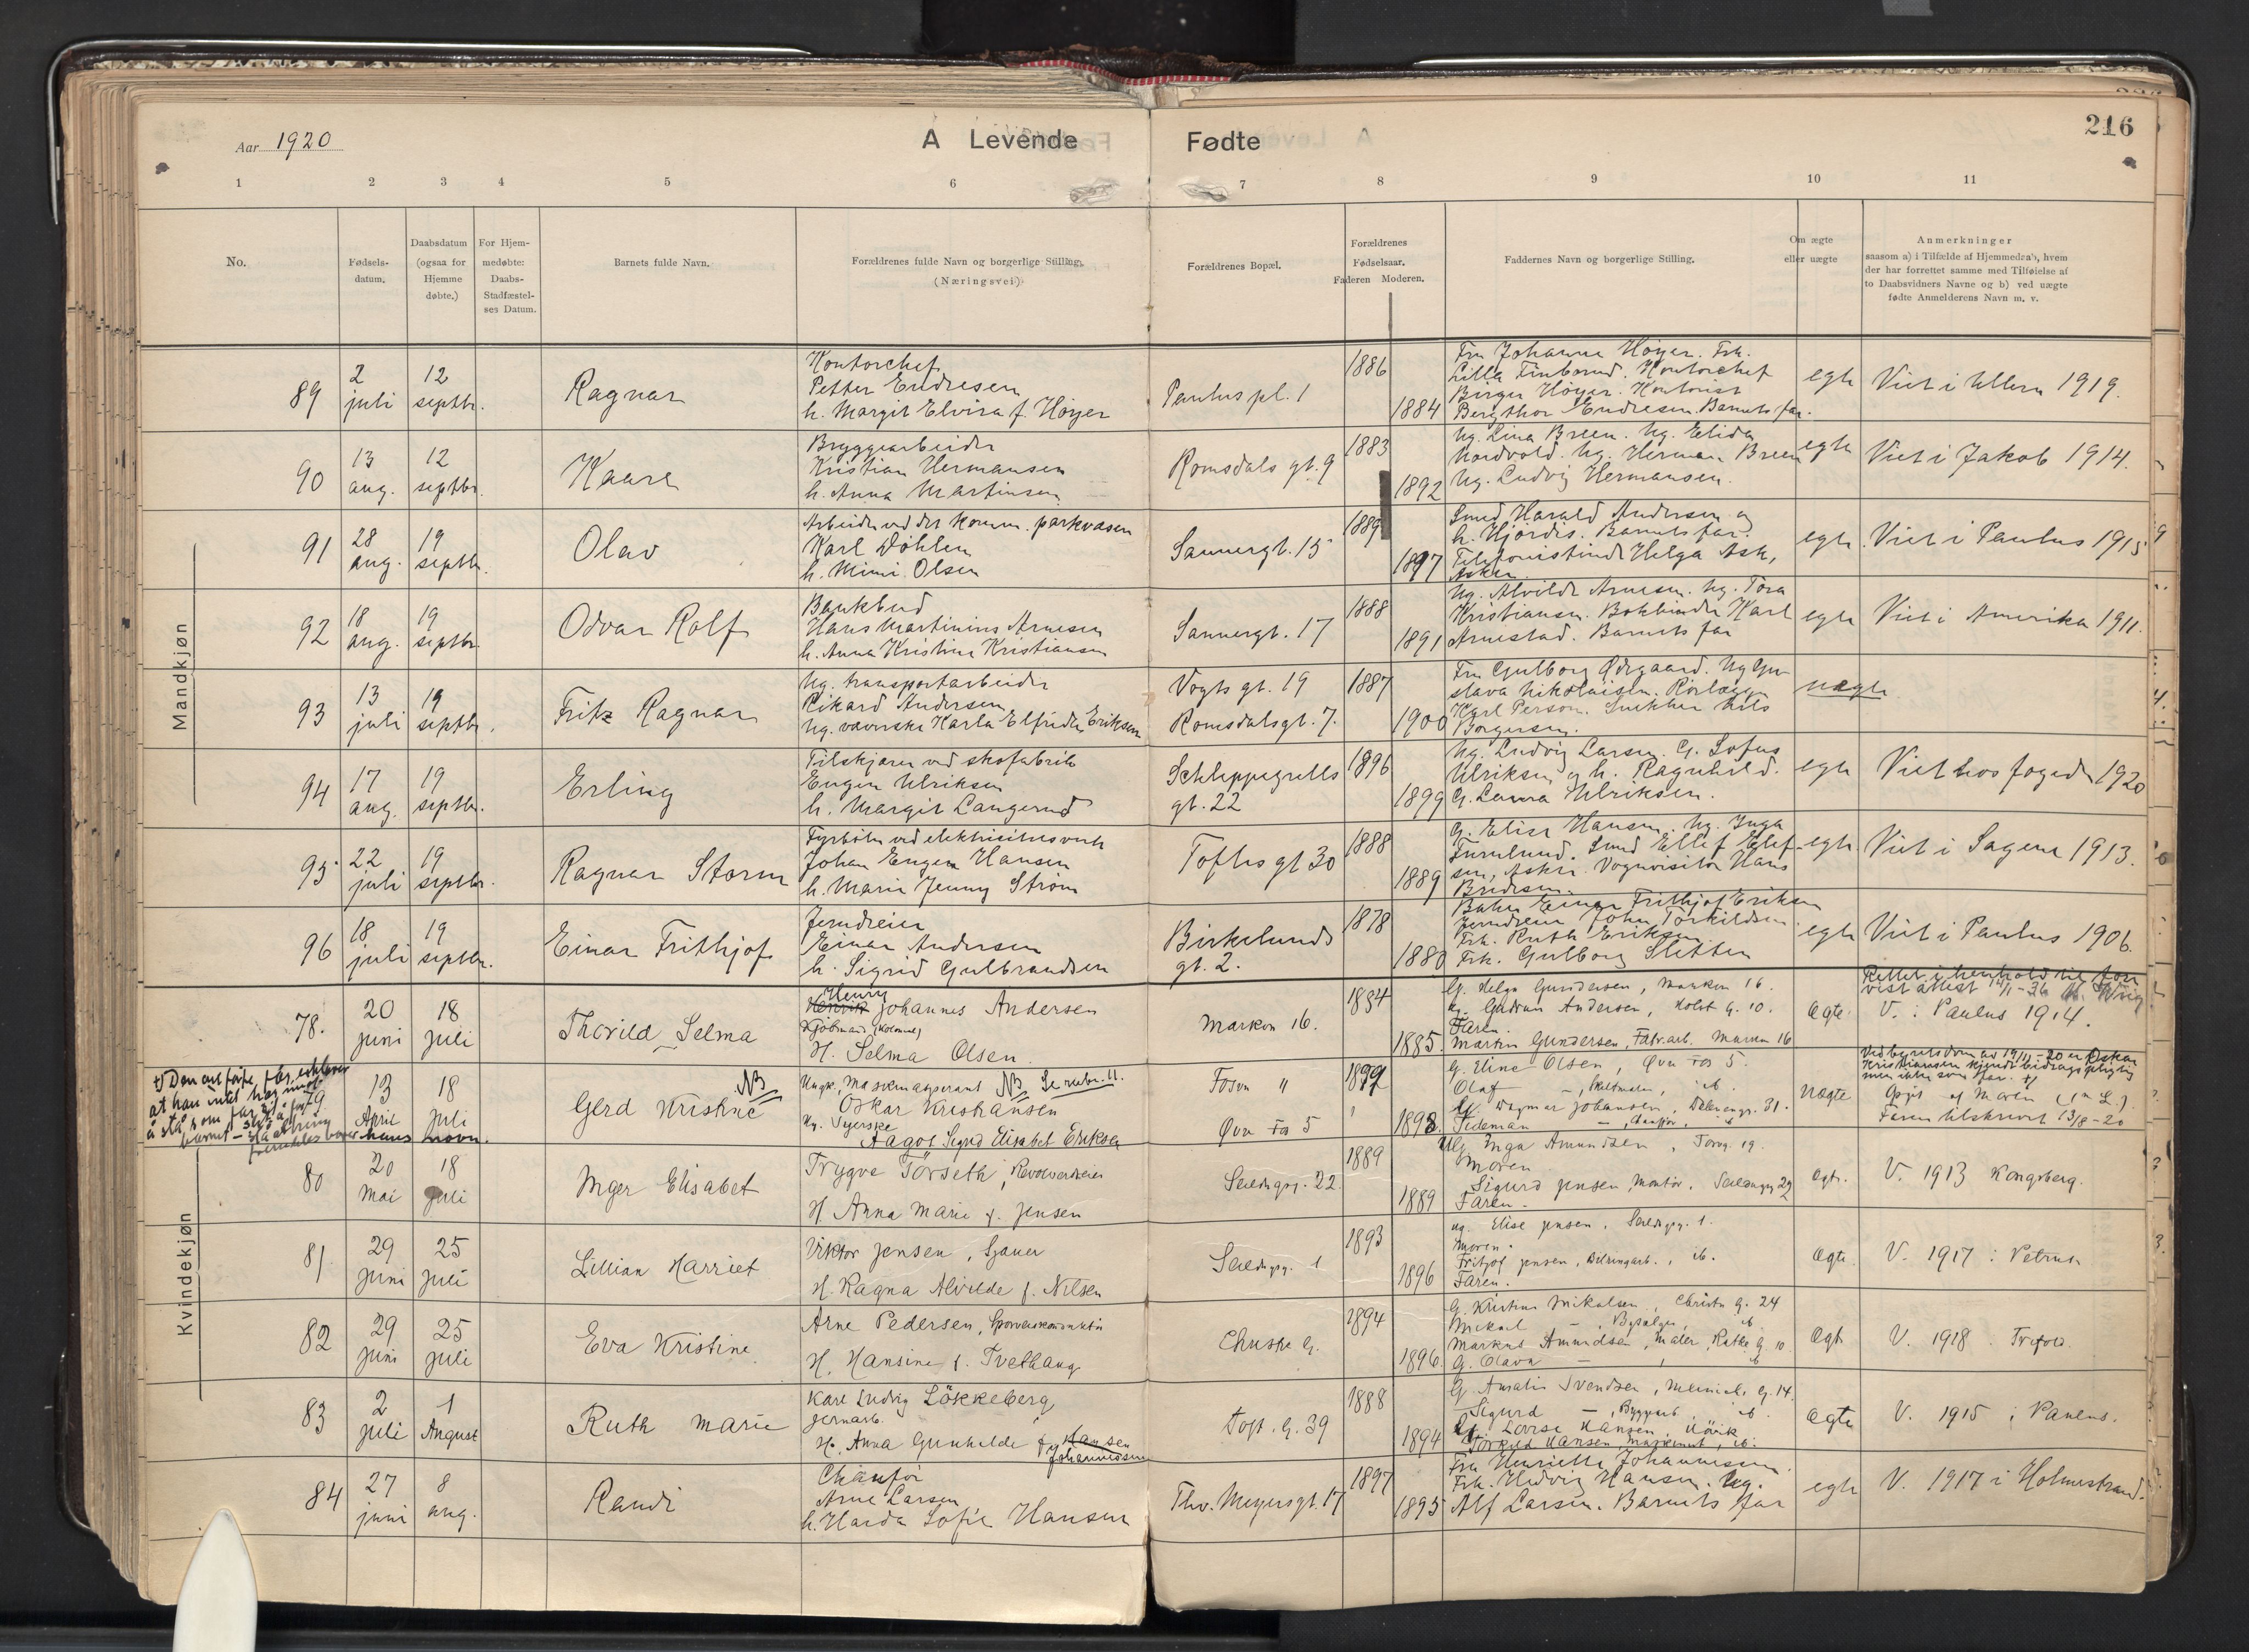 216
Aar 1920
A Levende Fødte
1 2 3 4 5 6 7 8 9 10 11
No.
Fødsels-
datum.
Daabsdatum
(ogsaa for
Hjemme
døbte.)
For Hjem-
medøbte:
Daabs-
Stadfæstel-
ses Datum.
Barnets fulde Navn.
Forældrenes fulde Navn og borgerlige Stilling.
(Næringsvei)
Forældrenes Bopæl.
Forældrenes
Fødselsaar.
Faderen Moderen.
Faddernes Navn og borgerlige Stilling.
Om ægte
eller uægte
Anmerkninger
saasom a) i Tilfælde af Hjemmedaab, hvem
der har forrettet samme med Tilføielse af
to Daabsvidners Navne og b) ved uægte
fødte Anmelderens Navn m. v.
Mandkjøn
89
2
juli
12
septbr.
Ragnar
Kontorchef
Petter Endresen
h. Margit Elvira f. Höyer
Paulus pl. 1
1886
1884
Fru Johanna Höyer. Frk.
Lilla Finbrud. Kontorchef
Birger Höyer. Kontorist
Bergthor Endresen. Barnets far.
egte
Viet i Ullern 1919.
90
13
aug.
12
septbr.
Kaare
Bryggearbeider
Kristian Hermansen
h. Anna Martinsen
Romsdals gt. 9
1883
1892
Ug. Lina Breen. Ug. Elida
Nordvold. Ug. Herman Breen
Ug. Ludvig Hermansen.
egte
Viet i Jakob 1914.
91
28
aug.
19
septbr.
Olav
Arbeider ved det komm. parkvæsen
Karl Döhlen
h. Mimi Olsen
Sannergt. 15
1889
1897
Smed Harald Andersen og
h. Hjördis. Barnets far.
Telefonistinde Helga Ask,
Asker
egte
Viet i Paulus 1915
92
18
aug.
19
septbr.
Odvar Rolf
Bankbud
Hans Martinius Arnesen
h. Anna Kristine Kristiansen
Sannergt. 17
1888
1891
Ug. Alvilde Arnesen. Ug. Tora
Kristiansen. Bokbinder Karl
Arnestad. Barnets far
egte
Viet i Amerika 1911.
93
13
juli
19
septbr.
Fritz Ragnar
Ug. transportarbeider
Rikard Andersen
Ug. væverske Karla Elfrida Eriksen
Vogts gt. 19
Romsdalsgt. 7.
1887
1900
Fru Gulborg Ödegaard. Ug Gu-
stava Nikolaisen. Rörlægger
Karl Person. Snekker Nils
Borgersen.
uegte
94
17
aug.
19
septbr.
Erling
Tilskjærer ved skofabrik
Eugen Ulriksen
h. Margit Langerud
Schleppegrells
gt. 22
1896
1899
Ug. Ludvig Larsen. G. Sofus
Ulriksen og h. Ragnhild.
G. Laura Ulriksen.
egte
Viet hos foged 1920
95
22
juli
19
septbr.
Ragnar Storm
Fyrböter ved elektricitetsverk
Johan Eugen Hansen
h. Marie Jenny Ström
Toftes gt 30
1888
1889
G. Elise Hansen. Ug. Inga
Furulund. Smed Ellef Elef-
sen, Asker. Vognvisitör Hans
Bredesen.
egte
Viet i Sagene 1913.
96
18
juli
19
septbr.
Einar Frithjof
Jerndreier
Einar Andersen
h. Sigrid Gulbrandsen
Birkelunds
gt. 2.
1878
1880
Einar Frithjof Eriksen
Jerndreier John Torkildsen
Frk. Ruth Eriksen
Frk. Gulborg Sletten
egte
Viet i Paulus 1906.
78.
20
juni
18
juli
Thorild Selma
Henry
Henrik Johannes Andersen
Kjöbmand (Kolonial)
H. Selma Olsen.
Markvn 16.
1884
1885.
G. Helga Gundersen, Markvn 16.
Ug. Gudrun Andersen, Holst G. 10.
Faren.
Martin Gundersen, Fabr.arb. Markvn 16
ægte.
Rettet i henhold til fore
vist attest 14/1-36
V. i Paulus 1914.
79
13
April
18
juli
Gerd Kristine NB
Ungk. Maskinaspirant NB Se rubr. 11.
Oskar Kristiansen
Ug. Syerske
Aagot Sigrid Elisabet Eriksen
Fosvn "
Övre Fos 5
1899
1898.
G. Eline Olsen, Övre Fos 5.
Olaf — , ib.
G. Dagmar Johansen, Dælenengt. 31.
— , Chaufför, ib
uægte
Ved byretsdom av 19/11-20 er Oskar
Kristiansen kjendt bidragspligtig
men ikke som far. +)
Opgit af Moren
Faren tilskrevet 13/8-20
+) Den anførte far erklærer
at han intet har imot
å stå som far
barnet
fremdeles bærer hans navn.
Kvindekjøn
80
20
Mai
18
Juli
Inger Elisabet
Trygve Torseth, Revolverdreier
H. Anna Marie f. Jensen
Seildugsg. 22.
1889
1889
Ug. Inga Amundsen, Torvg. 19.
Moren
Sigurd Jensen, Montör. Seildugsg 22
Faren.
ægte.
V. 1913 Kongsberg.
81
29
Juni
25
Juli
Lillian Harriet
Viktor Jensen, Sjauer
H. Ragna Alvilde f. Nilsen
Seildugsg. 1
1893
1896
Ug. Elise Jensen, Seildugsg. 1.
Moren.
Fritjof Jensen, , ib.
Faren.
ægte.
V. 1917 i Petrus.
82
29
Juni
25
Juli
Eva Kristine
Arne Pedersen, Sporveiskonduktör
H. Hansine f. Tvethaug
Christie G.
1894
1896.
G. Kristine Mikalsen, Christie G. 24
Mikael — , ib
Markus Amundsen, Maler, Rathke G. 10.
G. Olava — , ib
ægte
V. 1918
83
2
Juli
1
August
Ruth Marie
Karl Ludvig Lökkeberg,
Jernarb.
H. Anna Gunhilde f. Hansen
Johannessen
Toft. G. 39
1888
1894
G. Amalie Svendsen, G. 14.
Sigurd — , , ib.
G. Lovise Hansen, Hövik
Torkild Hansen, Maskinist, ib.
ægte
V. 1915 i Paulus.
84
27
juni
8
aug.
Randi
Chauför
Arne Larsen
h. Harda Sofie Hansen
Thv. Meyersgt. 17
1897
1895
Fru Henriette Johannesen.
Frk. Hedvig Hansen. Ug.
Alf Larsen. Barnets far
egte
V. 1917 i Holmestrand.